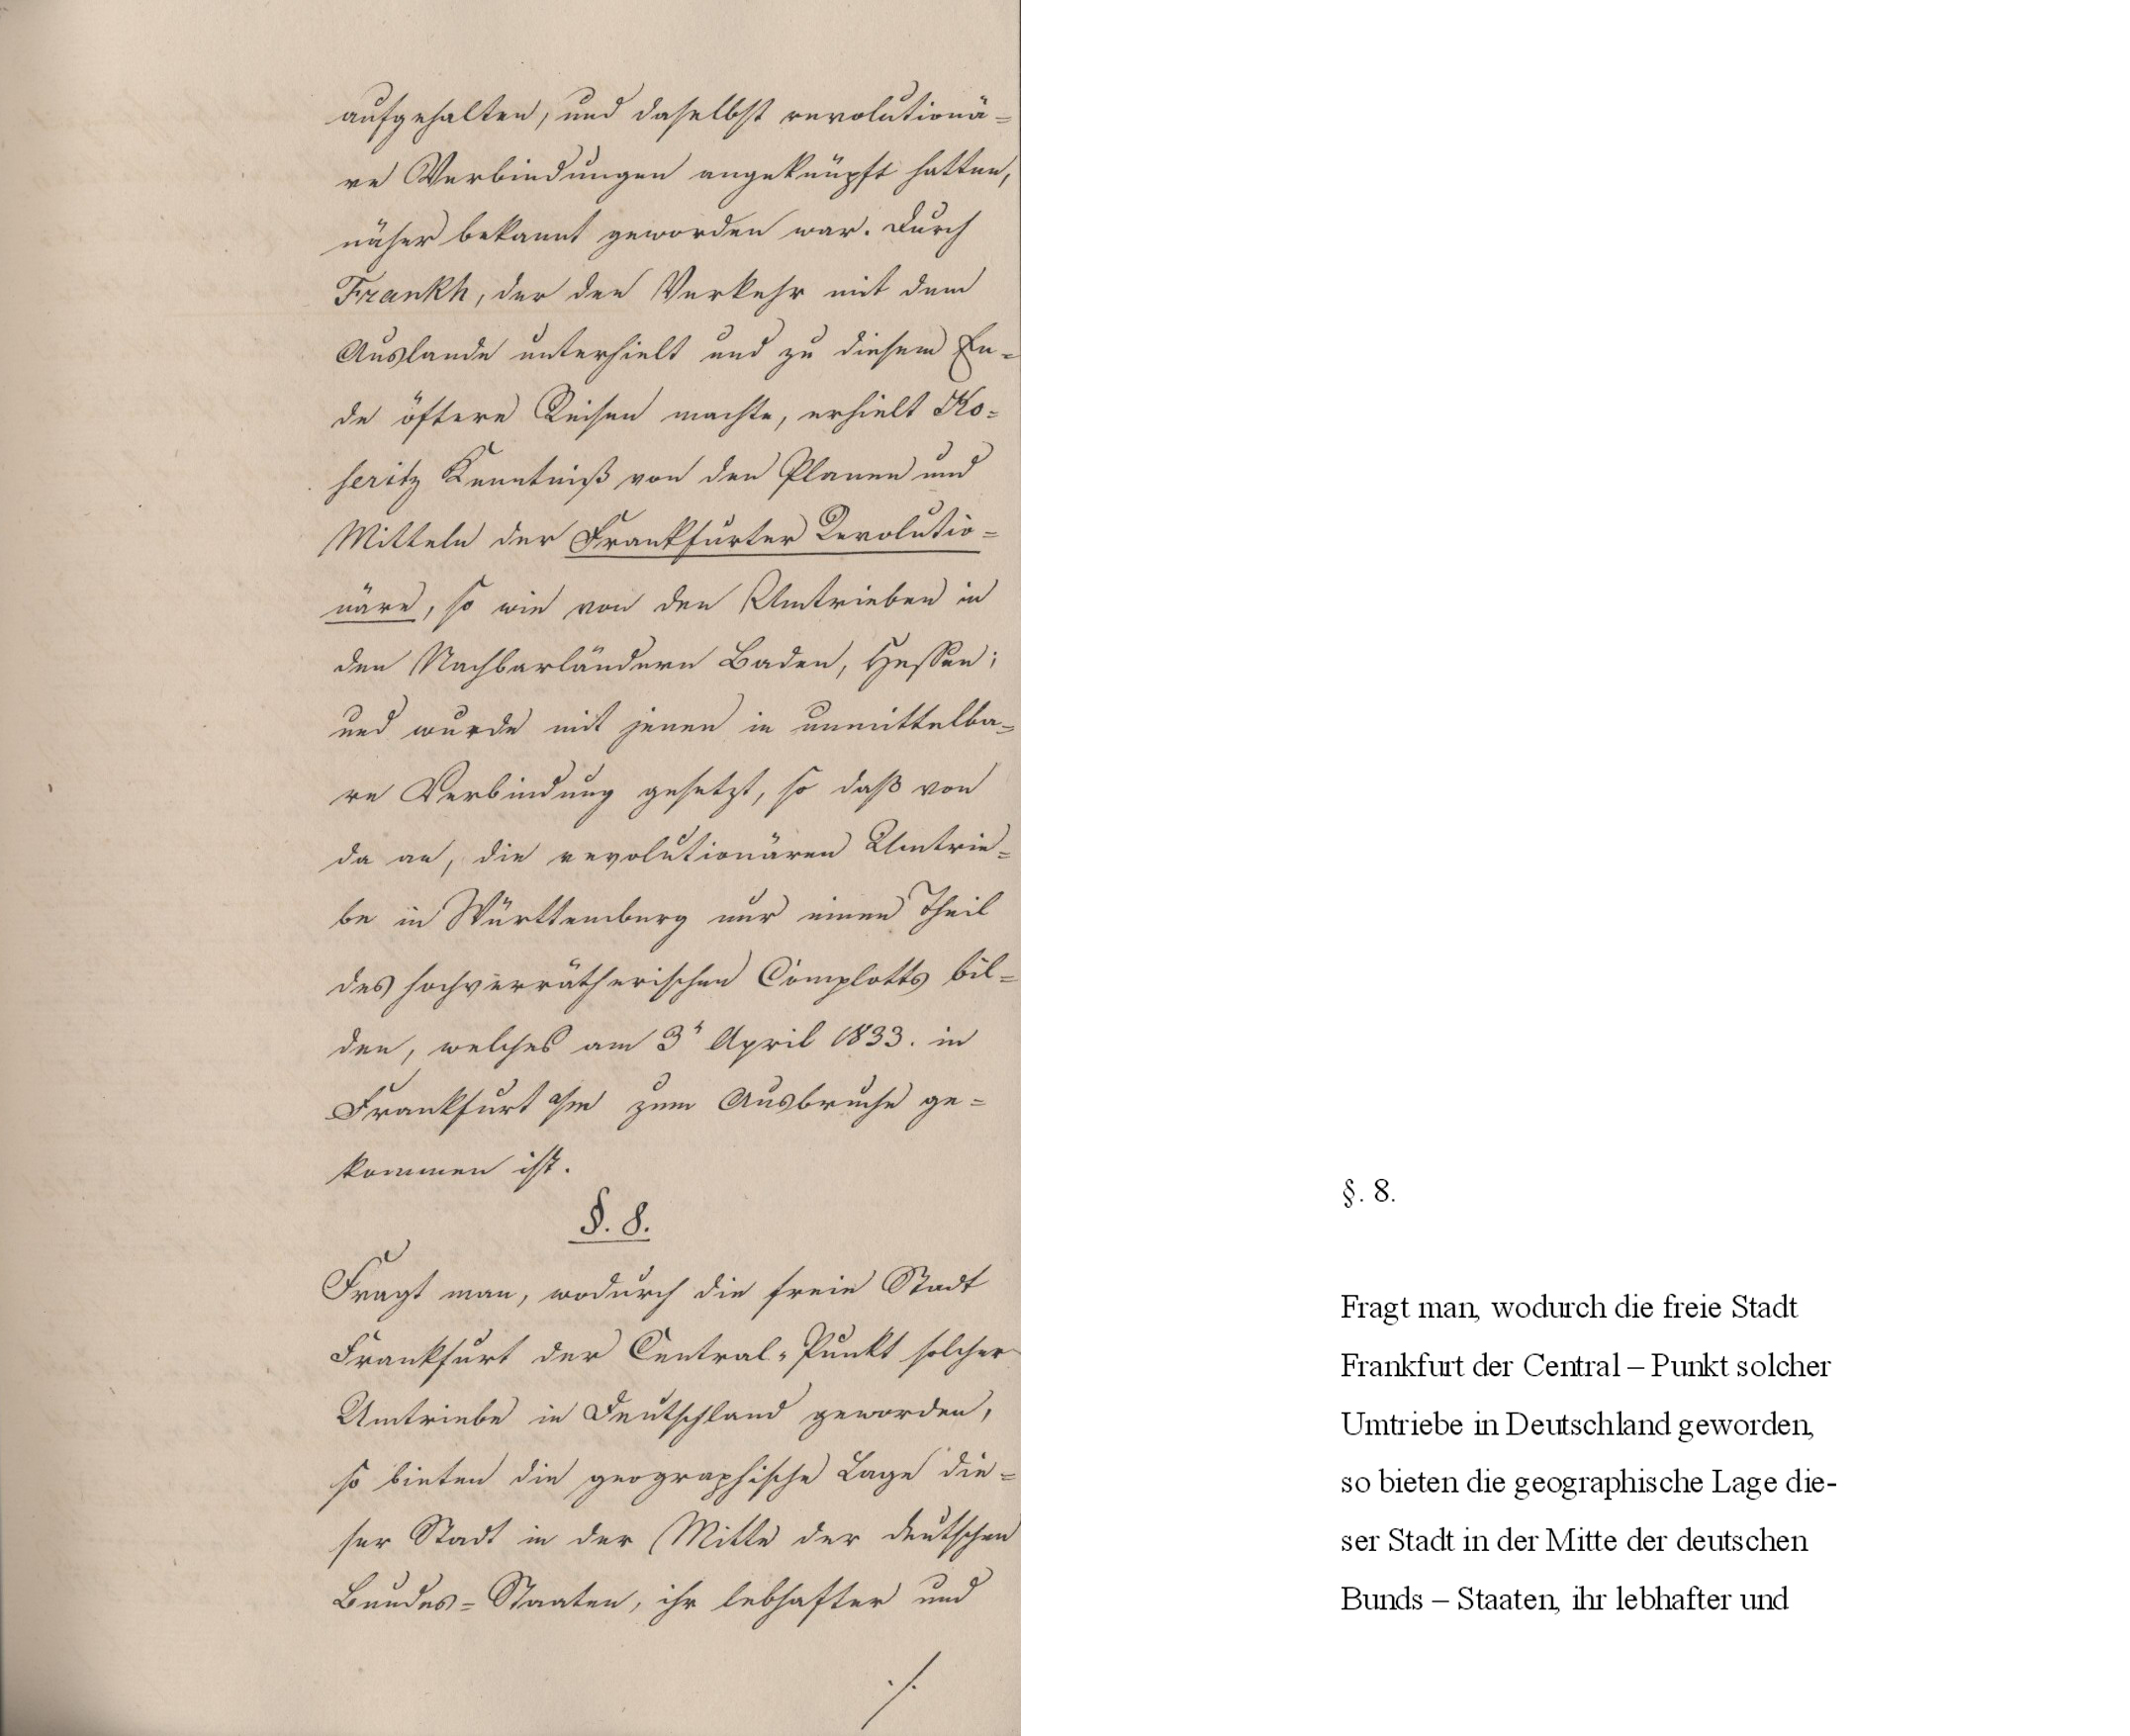 aufgehalten, und daselbst revolutionä=
re Verbindungen angeknüpft hatten,
näher bekannt geworden war. Durch
Frankh, der den Verkehr mit dem
Auslande unterhielt und zu diesem En=
de öftere Reisen machte, erhielt Ko=
seritz Kenntniß von den Planen und
Mitteln der Frankfurter Revolutio=
näre, so wie von den Umtrieben in
den Nachbarländern Baden, Hessen;
und wurde mit jenen in unmittelba=
re Verbindung gesetzt, so daß von
da an, die revolutionären Umtrie=
be in Württemberg nur einen Theil
des hochverrätherischen Complotts bil=
den, welches am 3t April 1833. in
Frankfurt a/m zum Ausbruche ge=
kommen ist.
§. 8.
Fragt man, wodurch die freie Stadt
Frankfurt der Central=Punkt solcher
Umtriebe in Deutschland geworden,
so bieten die geographische Lage die=
ser Stadt in der Mitte der deutschen
Bundes=Staaten, ihr lebhafter und
./.
§. 8.
Fragt man, wodurch die freie Stadt
Frankfurt der Central – Punkt solcher
Umtriebe in Deutschland geworden,
so bieten die geographische Lage die-
ser Stadt in der Mitte der deutschen
Bunds – Staaten, ihr lebhafter und